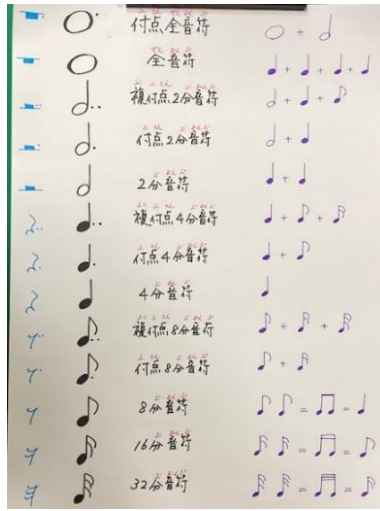 付点全音符
全音符
複付点2分音符
付点2分音符
2分音符
複付点4分音符
付点4分音符
4分音符
複付点8分音符
付点8分音符
8分音符
16分音符
32分音符